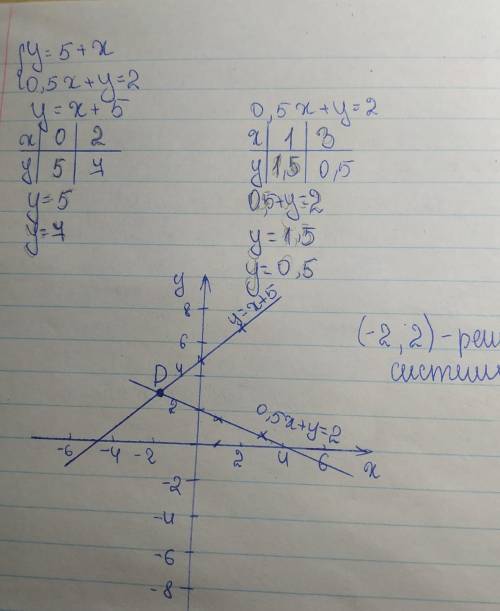 {y = 5 + x
0,5x + y = 2
y = x + 5
x 0 2
y 5 7
y = 5
y = 7
0,5x + y = 2
x 1 3
y 1,5 0,5
0,5 + y = 2
y = 1,5
y = 0,5
y
8
y = x + 5
6
4
D
2
0,5x + y = 2
-6 -4 -2 2 4 6
x
-2
-4
-6
-8
(-2, 2) - реш
систем